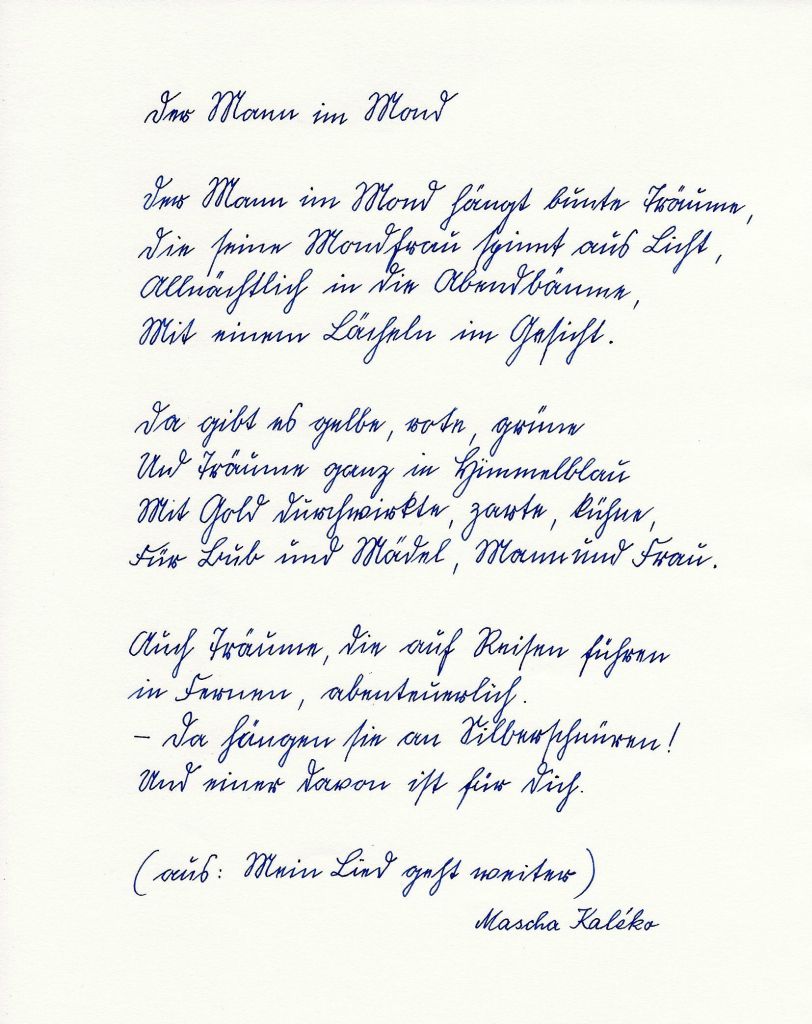 Der Mann im Mond
Der Mann im Mond hängt bunte Träume,
die seine Mondfrau spinnt aus Licht,
Allnächtlich in die Abendbäume,
Mit einem Lächeln im Gesicht.
Da gibt es gelbe, rote, grüne
Und Träume ganz in Himmelblau
Mit Gold durchwirkte, zarte, kühne,
Für Bub und Mädel, Mann und Frau.
Auch Träume, die auf Reisen führen
in Fernen, abenteuerlich.
– Da hängen sie an Silberschnüren!
Und einer davon ist für dich.
(aus: Mein Lied geht weiter)
Mascha Kaléko